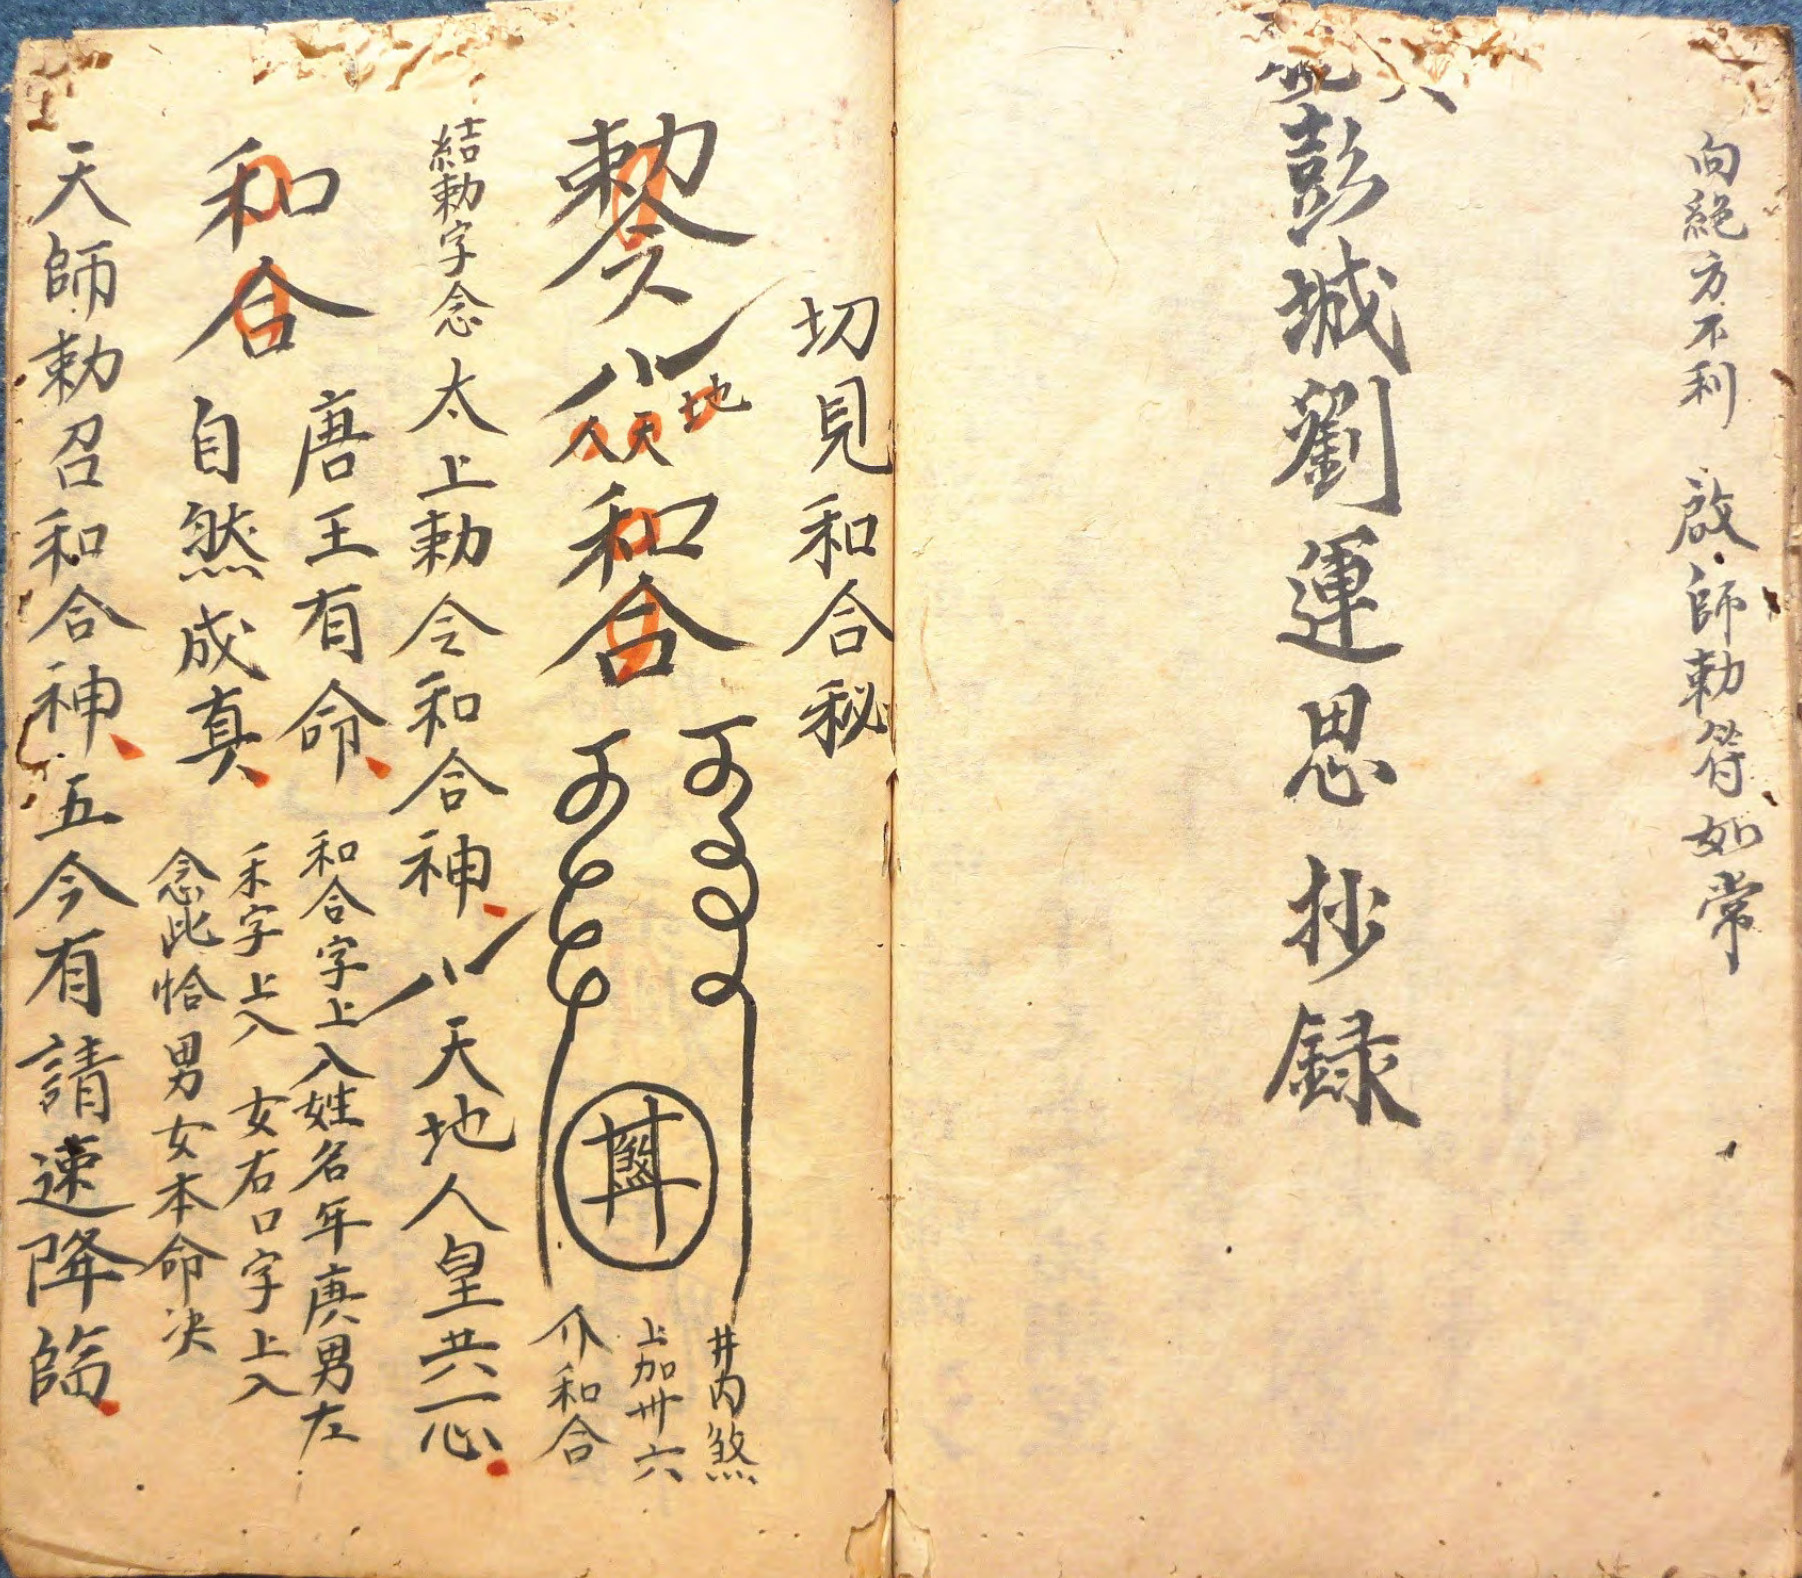 向絕方不利 啟師勅符如常
彭城劉運思抄録
切見和合秘
勅令
地
天
人
和合
井内煞
上加卅六
个和合
結勅字念太上勅令和合神
天地人皇共一心
唐王有命
和合字上入姓名年庚男左
禾字上入 女右口字上入
和合
自然成真
念此恰男女本命决
天師勅召和合神五今有請速降臨